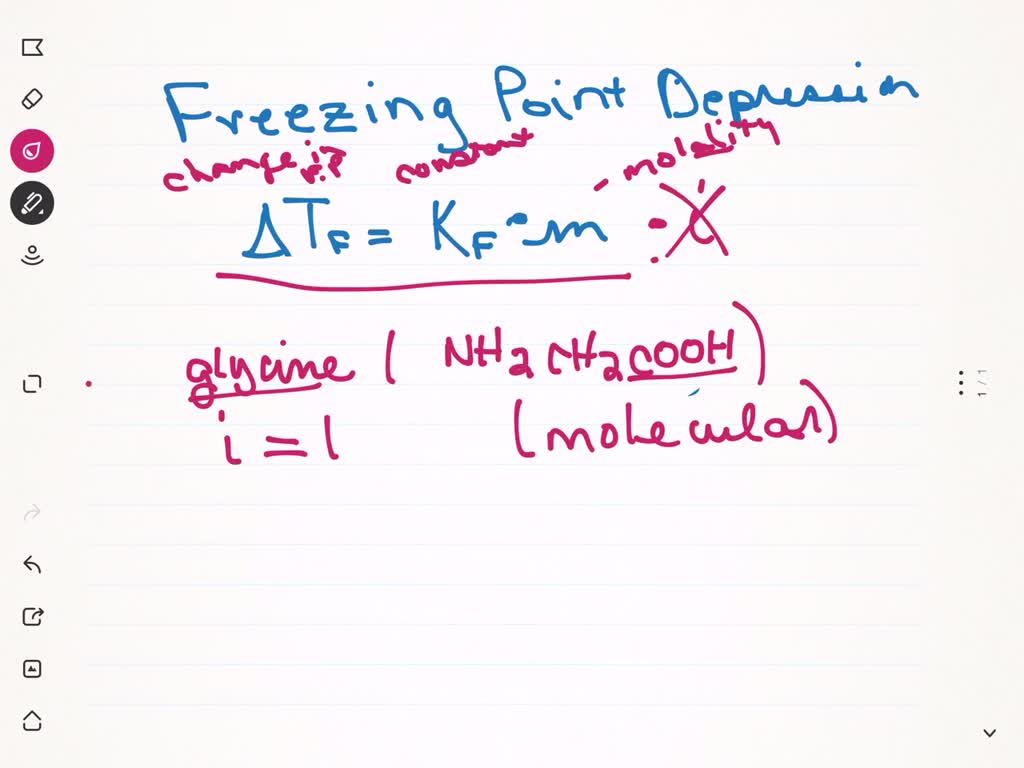 Freezing Point Depression
change in F.P. constant molality
ΔTF = KF · m · i
glycine ( NH2CH2COOH )
i = 1 (molecular)
1 / 1